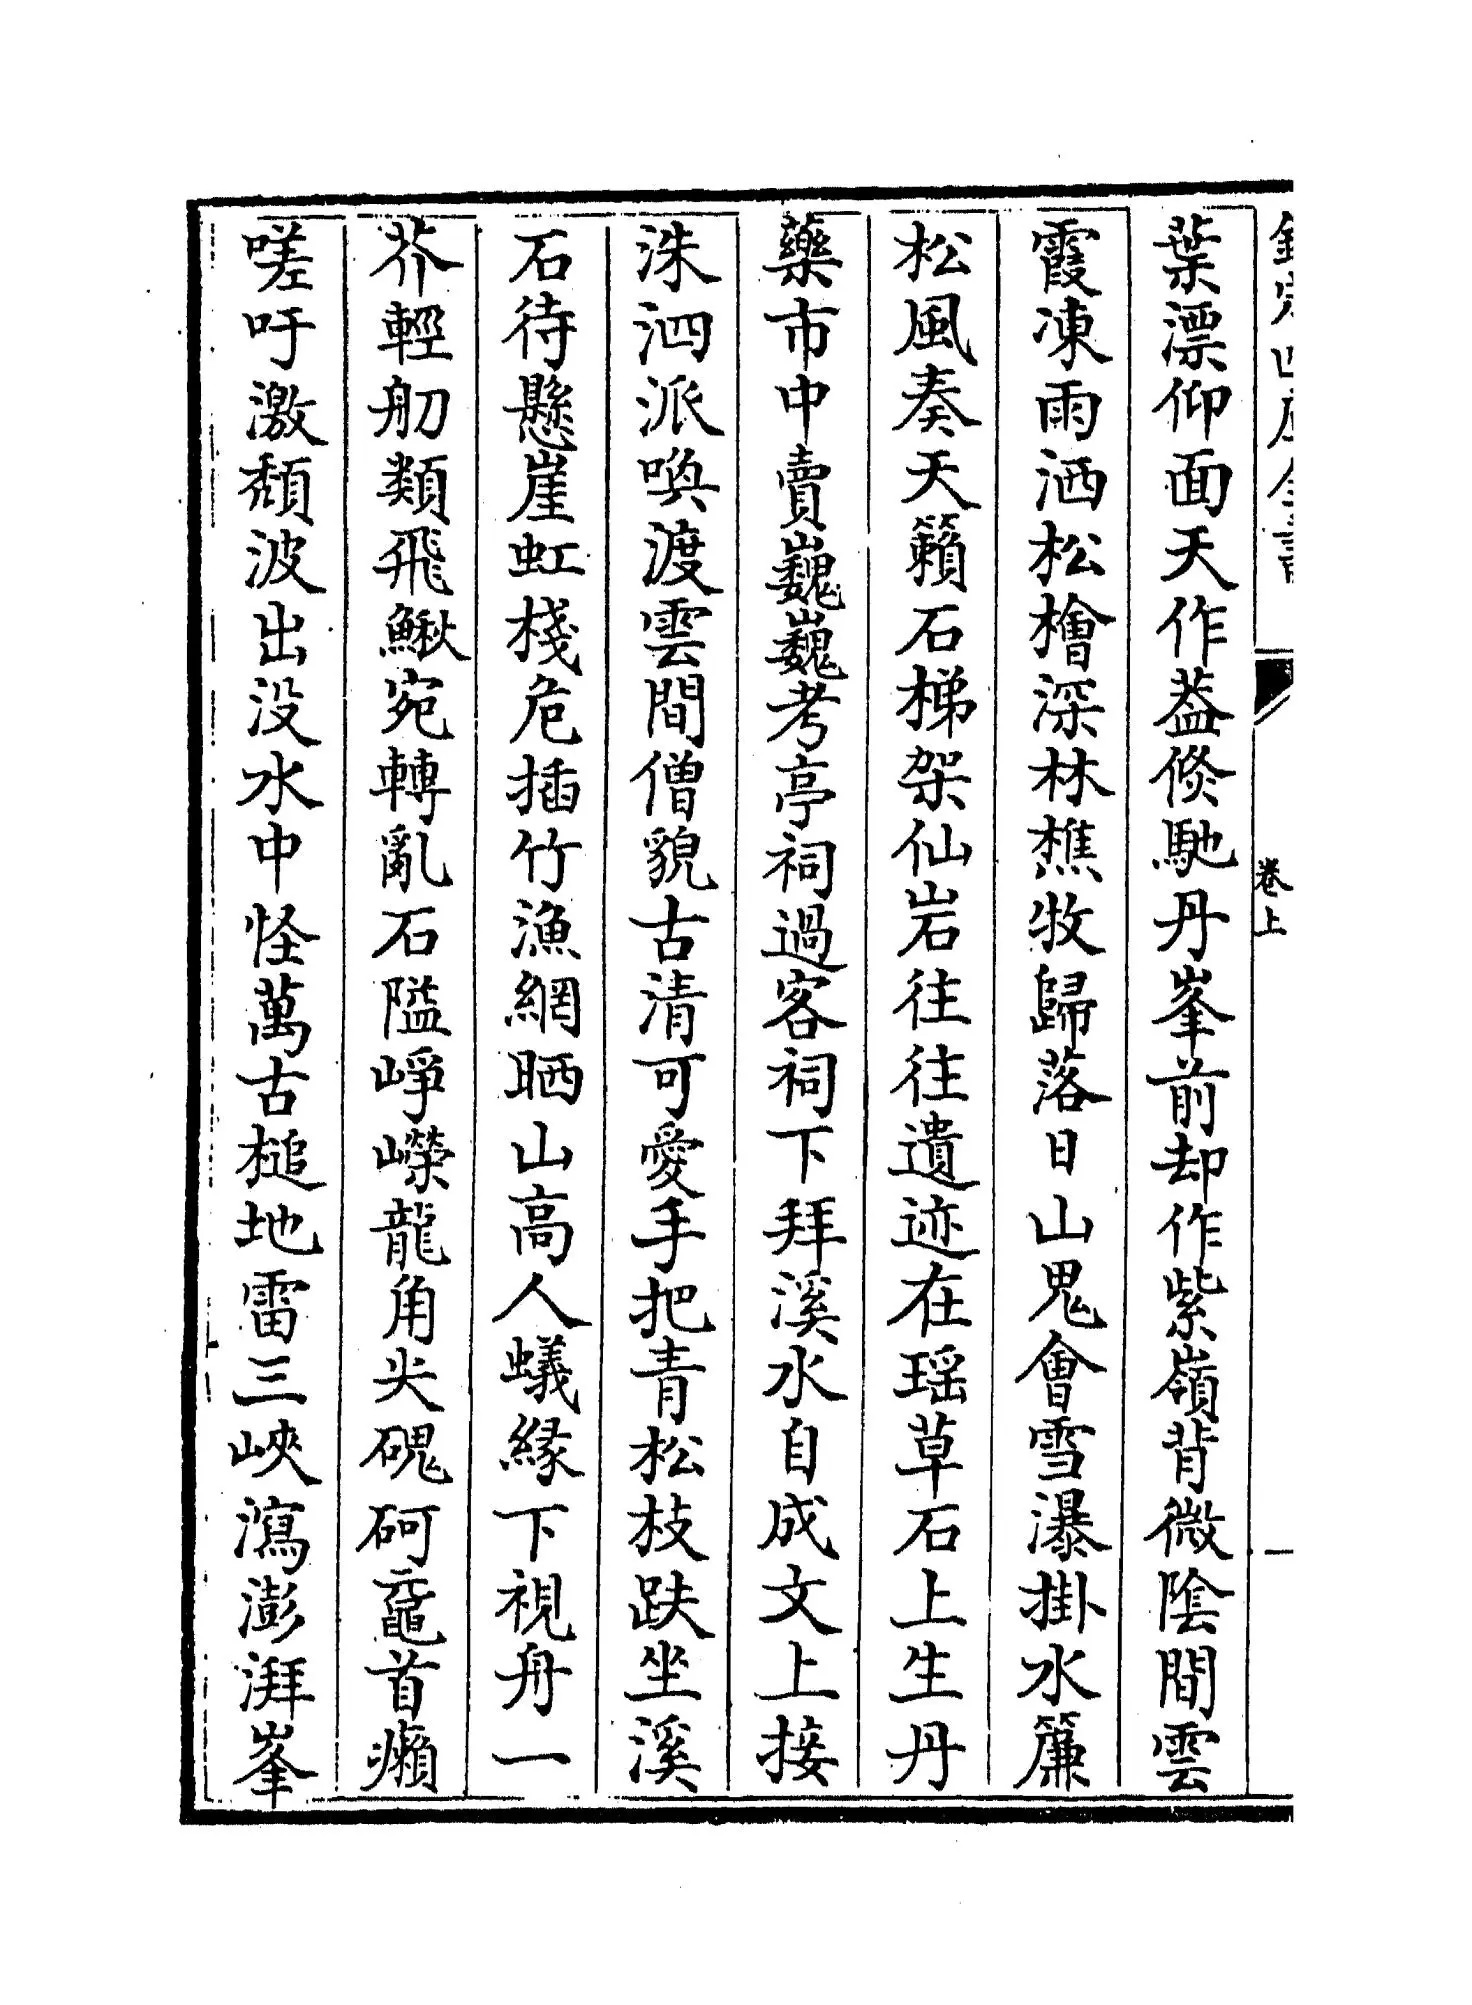 欽定四庫全書
卷上
一
葉漂仰面天作葢倏馳丹峯前却作紫嶺背微陰間雲
霞凍雨洒松檜深林樵牧歸落日山鬼會雪瀑掛水簾
松風奏天籟石梯架仙岩往往遺迹在瑶草石上生丹
藥市中賣巍巍考亭祠過客祠下拜溪水自成文上接
洙泗派喚渡雲間僧貌古清可愛手把青松枝趺坐溪
石待懸崖虹棧危插竹漁網晒山高人蟻緣下視舟一
芥輕舠類飛鰍宛轉亂石隘崢嶸龍角尖磈砢黿首癩
嗟吁激頽波出没水中怪萬古槌地雷三峽瀉澎湃峯